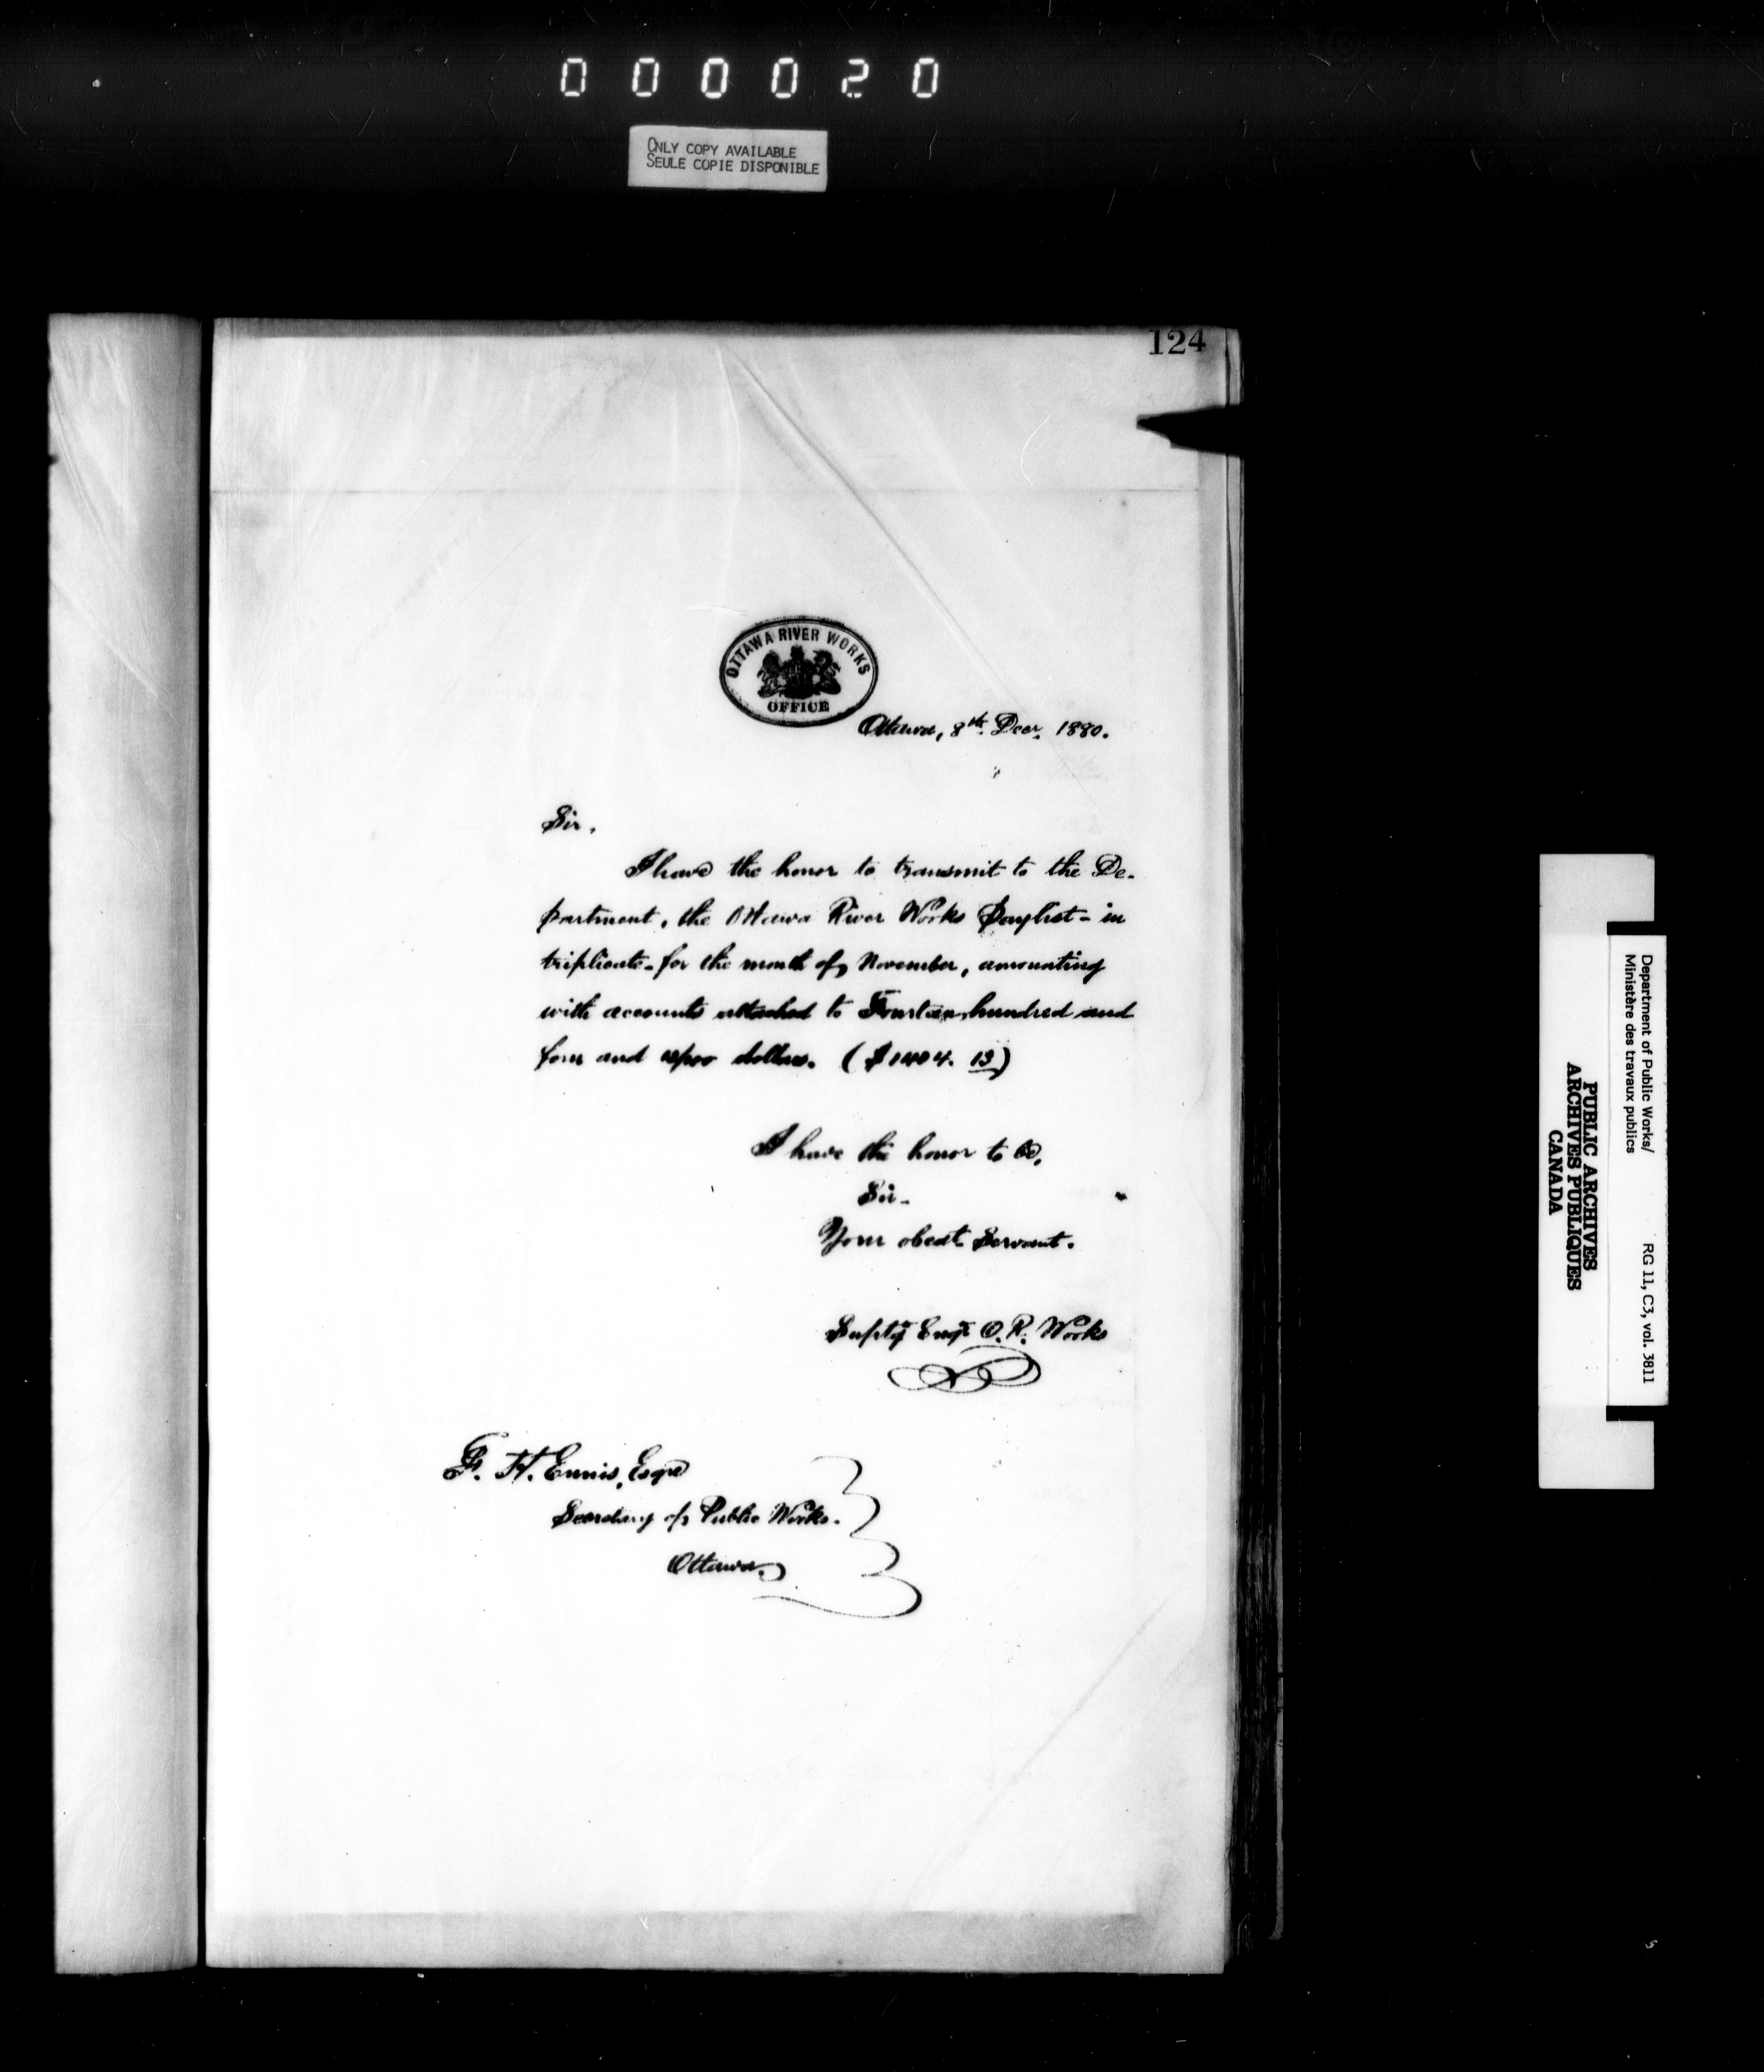 000020
ONLY COPY AVAILABLE
SEULE COPIE DISPONIBLE
124
OTTAWA RIVER WORKS
OFFICE
Ottawa, 8th. Decr. 1880.
Sir,
I have the honor to transmit to the De-
partment, the Ottawa River Works Paylist - in
triplicate - for the month of November, amounting
with accounts attached to Fourteen hundred and
four and 13/100 dollars. ($1404.13)
I have the honor to be,
Sir -
Your obedt. Servant.
Suptg Engr O. R. Works
F. H. Ennis, Esqre
Secretary of Public Works.
Ottawa.
Department of Public Works/
Ministère des travaux publics
RG 11, C3, vol. 3811
PUBLIC ARCHIVES
ARCHIVES PUBLIQUES
CANADA